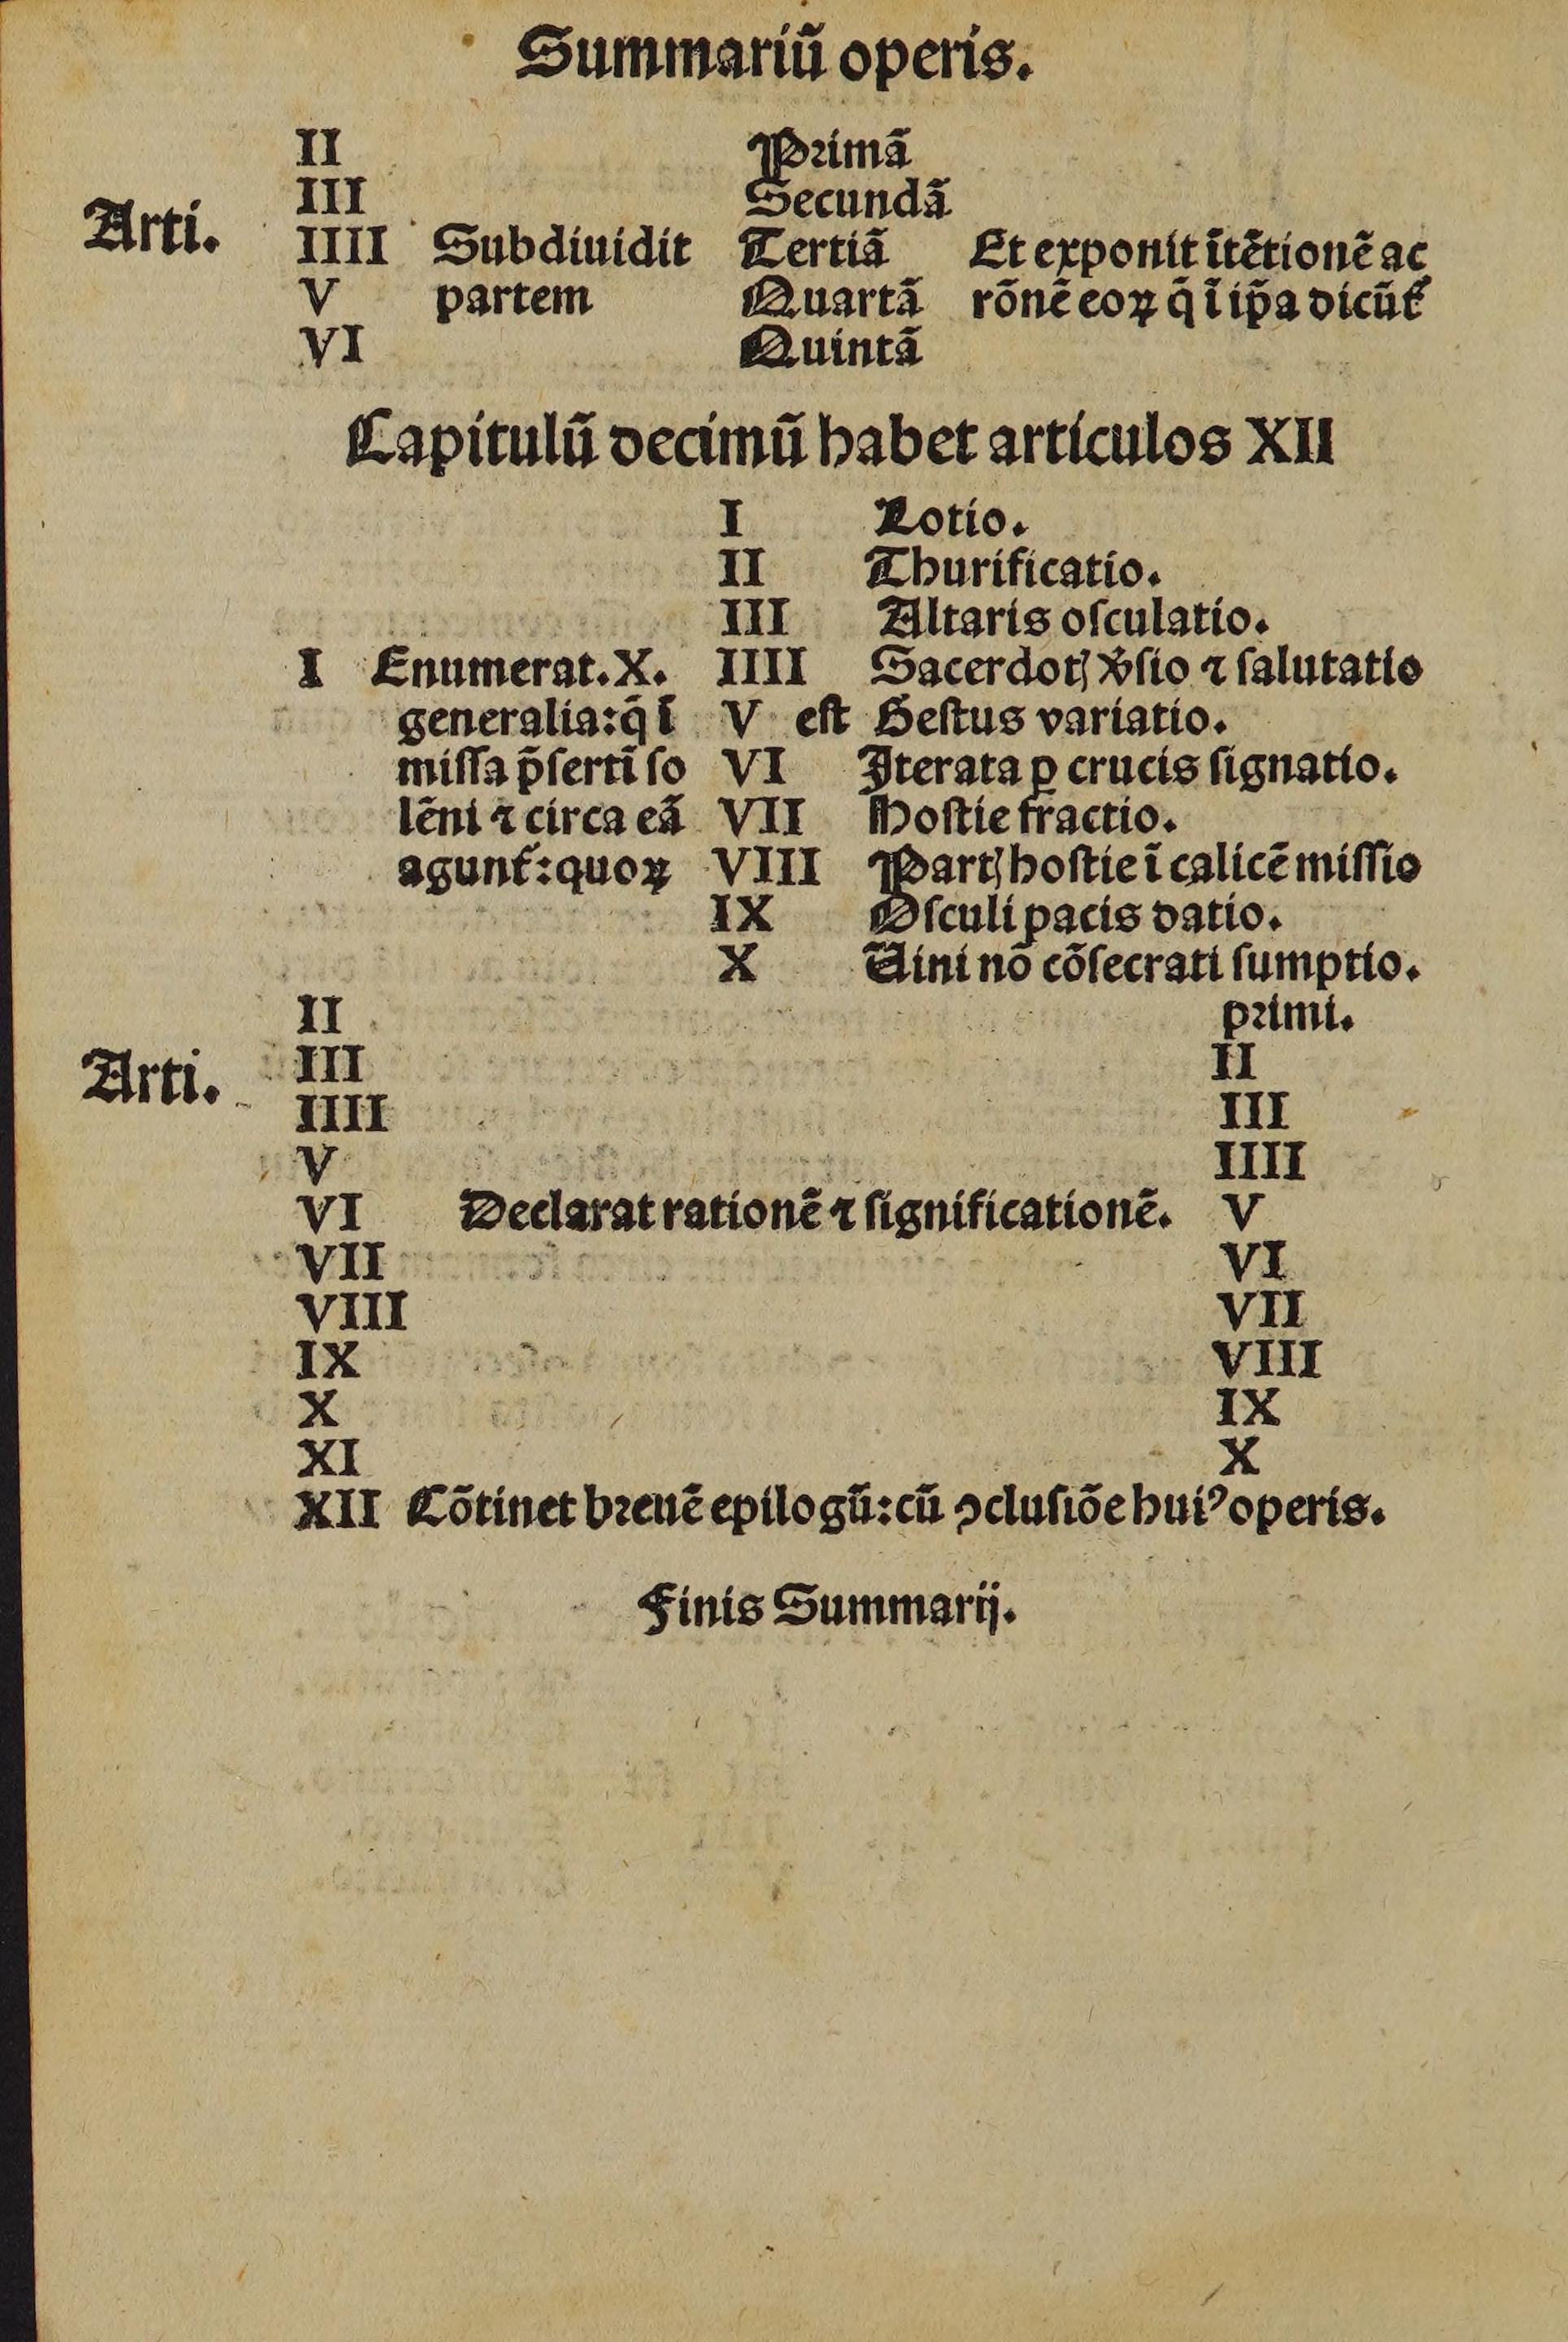 Summariũ operis.
II Primã
III Secundã
Arti. IIII Subdiuidit Tertiã Et exponit ĩtẽtionẽ ac
V partem Quartã rõnẽ eoꝝ q̃ ĩ ip̃a dicũt᷑
VI Quintã
Capitulũ decimũ habet articulos XII
I Lotio.
II Thurificatio.
III Altaris oſculatio.
I Enumerat.X. IIII Sacerdotꝭ v̾ſio ⁊ ſalutatio
generalia:q̃ ĩ V eſt Geſtus variatio.
miſſa p̃ſertĩ ſo VI Iterata ꝑ crucis ſignatio.
lẽni ⁊ circa eã VII Hoſtie fractio.
agunt᷑:quoꝝ VIII Partꝭ hoſtie ĩ calicẽ miſſio
IX Oſculi pacis datio.
X Uini nõ cõſecrati ſumptio.
II primi.
Arti. III II
IIII III
V IIII
VI Declarat rationẽ ⁊ ſignificationẽ. V
VII VI
VIII VII
IX VIII
X IX
XI X
XII Cõtinet breuẽ epilogũ:cũ ↄcluſiõe huiꝰ operis.
Finis Summarij.